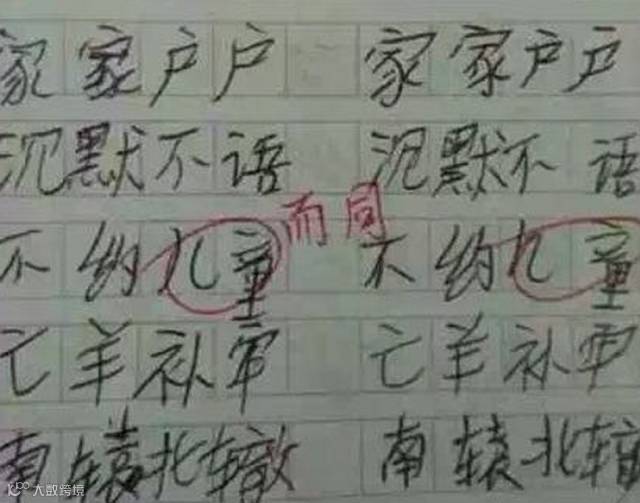 家家户户 家家户户
沉默不语 沉默不语
而同
不约儿童 不约儿童
亡羊补牢 亡羊补牢
南辕北辙 南辕北辙
大数跨境